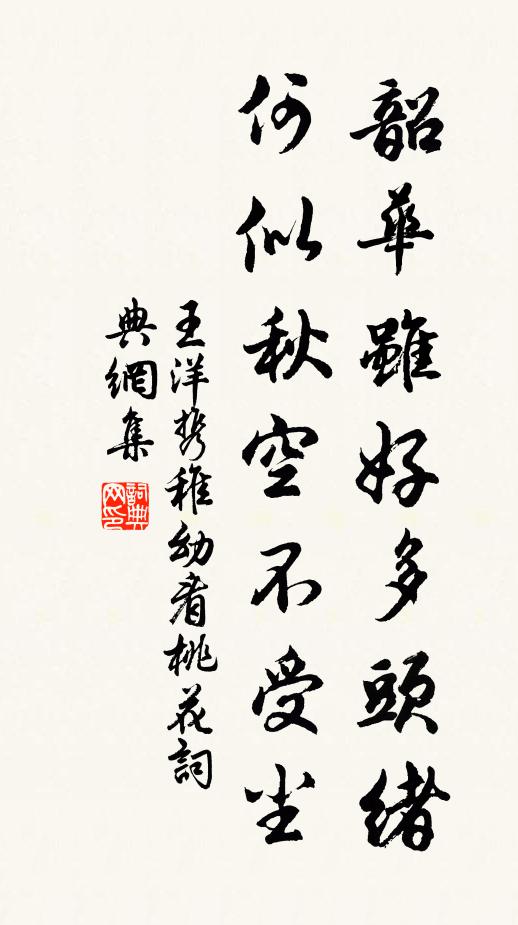 韶華雖好多頭緒
何似秋空不受塵
王洋攜稚幼看桃花詞
典網集
詞典網印